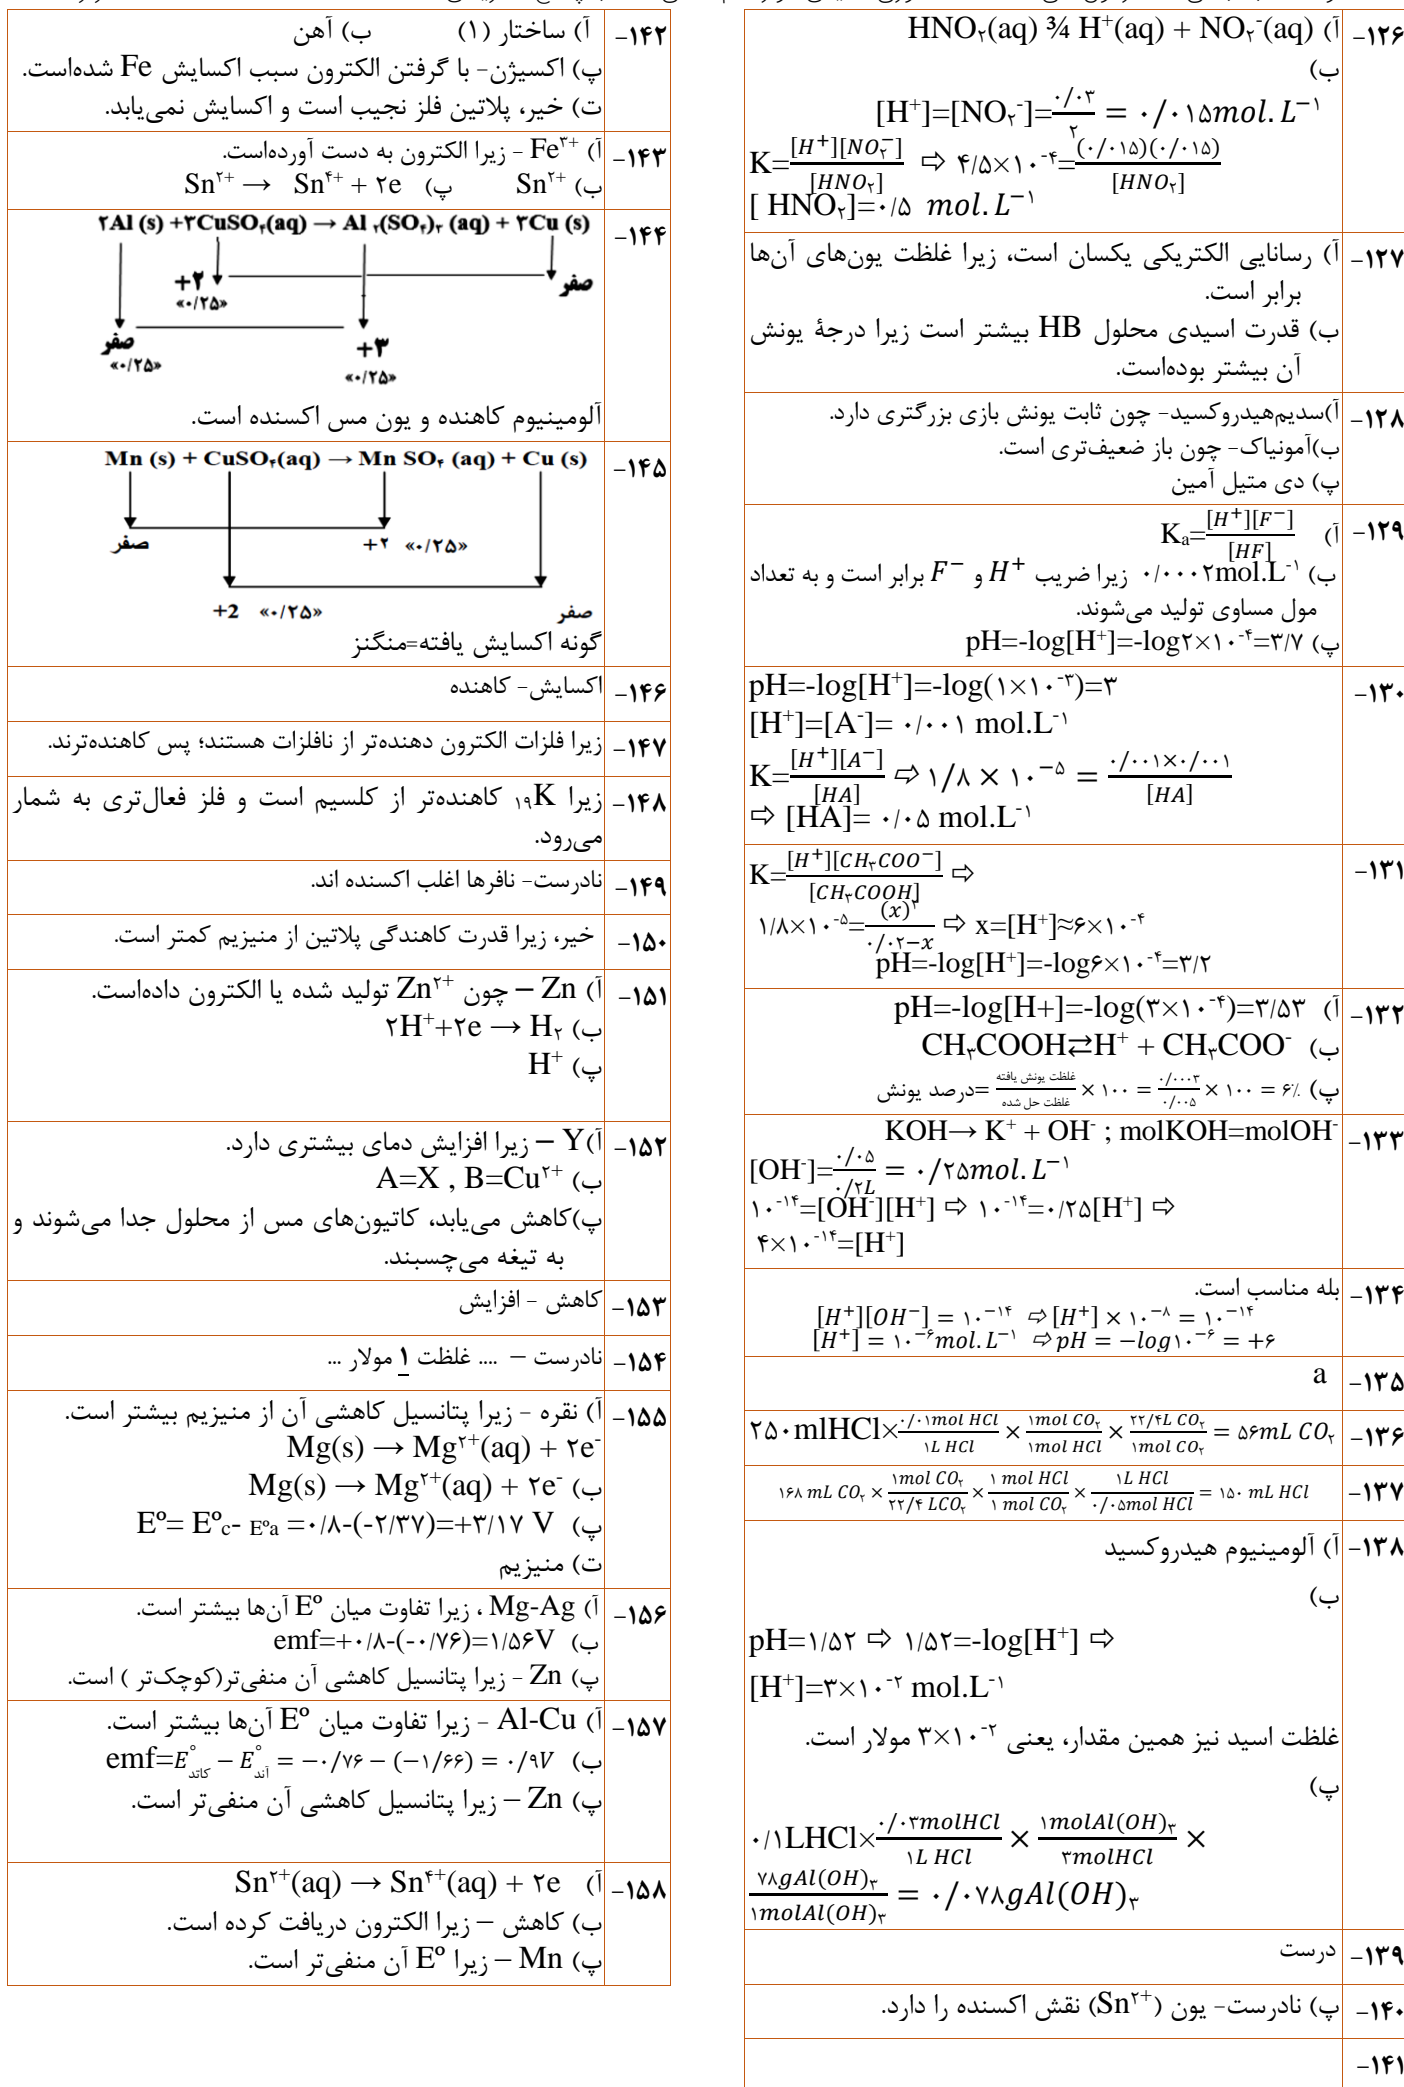 ۱۲۶- آ) HNO₂(aq) ¾ H⁺(aq) + NO₂⁻(aq)
ب)
[H⁺]=[NO₂⁻]=۰/۰۳/۲ = ۰/۰۱۵mol.L⁻¹
K=[H⁺][NO₂⁻]/[HNO₂] ⇨ ۴/۵×۱۰⁻⁴=(۰/۰۱۵)(۰/۰۱۵)/[HNO₂]
[ HNO₂]=۰/۵ mol.L⁻¹
۱۲۷- آ) رسانایی الکتریکی یکسان است، زیرا غلظت یون‌های آن‌ها
برابر است.
ب) قدرت اسیدی محلول HB بیشتر است زیرا درجۀ یونش
آن بیشتر بوده‌است.
۱۲۸- آ)سدیم‌هیدروکسید- چون ثابت یونش بازی بزرگتری دارد.
ب)آمونیاک- چون باز ضعیف‌تری است.
پ) دی متیل آمین
۱۲۹- آ) Kₐ=[H⁺][F⁻]/[HF]
ب) ۰/۰۰۰۲mol.L⁻¹ زیرا ضریب H⁺ و F⁻ برابر است و به تعداد
مول مساوی تولید می‌شوند.
پ) pH=-log[H⁺]=-log۲×۱۰⁻⁴=۳/۷
۱۳۰- pH=-log[H⁺]=-log(۱×۱۰⁻³)=۳
[H⁺]=[A⁻]= ۰/۰۰۱ mol.L⁻¹
K=[H⁺][A⁻]/[HA] ⇨ ۱/۸ × ۱۰⁻⁵ = ۰/۰۰۱×۰/۰۰۱/[HA]
⇨ [HA]= ۰/۰۵ mol.L⁻¹
۱۳۱- K=[H⁺][CH₃COO⁻]/[CH₃COOH] ⇨
۱/۸×۱۰⁻⁵=(x)²/۰/۰۲−x ⇨ x=[H⁺]≈۶×۱۰⁻⁴
pH=-log[H⁺]=-log۶×۱۰⁻⁴=۳/۲
۱۳۲- آ) pH=-log[H+]=-log(۳×۱۰⁻⁴)=۳/۵۳
ب) CH₃COOH⇄H⁺ + CH₃COO⁻
پ) درصد یونش= غلظت یونش یافته/غلظت حل شده × ۱۰۰ = ۰/۰۰۰۳/۰/۰۰۵ × ۱۰۰ = ۶٪
۱۳۳- KOH→ K⁺ + OH⁻ ; molKOH=molOH⁻
[OH⁻]=۰/۰۵/۰/۲L = ۰/۲۵mol.L⁻¹
۱۰⁻¹⁴=[OH⁻][H⁺] ⇨ ۱۰⁻¹⁴=۰/۲۵[H⁺] ⇨
۴×۱۰⁻¹⁴=[H⁺]
۱۳۴- بله مناسب است.
[H⁺][OH⁻] = ۱۰⁻¹⁴ ⇨ [H⁺] × ۱۰⁻⁸ = ۱۰⁻¹⁴
[H⁺] = ۱۰⁻⁶mol.L⁻¹ ⇨ pH = −log۱۰⁻⁶ = +۶
۱۳۵- a
۱۳۶- ۲۵۰mlHCl×۰/۰۱mol HCl/۱L HCl × ۱mol CO₂/۱mol HCl × ۲۲/۴L CO₂/۱mol CO₂ = ۵۶mL CO₂
۱۳۷- ۱۶۸ mL CO₂ × ۱mol CO₂/۲۲/۴ LCO₂ × ۱ mol HCl/۱ mol CO₂ × ۱L HCl/۰/۰۵mol HCl = ۱۵۰ mL HCl
۱۳۸- آ) آلومینیوم هیدروکسید
ب)
pH=۱/۵۲ ⇨ ۱/۵۲=-log[H⁺] ⇨
[H⁺]=۳×۱۰⁻² mol.L⁻¹
غلظت اسید نیز همین مقدار، یعنی ۳×۱۰⁻² مولار است.
پ)
۰/۱LHCl×۰/۰۳molHCl/۱L HCl × ۱molAl(OH)₃/۳molHCl ×
۷۸gAl(OH)₃/۱molAl(OH)₃ = ۰/۰۷۸gAl(OH)₃
۱۳۹- درست
۱۴۰- پ) نادرست- یون (Sn²⁺) نقش اکسنده را دارد.
۱۴۱-
۱۴۲- آ) ساختار (۱) ب) آهن
پ) اکسیژن- با گرفتن الکترون سبب اکسایش Fe شده‌است.
ت) خیر، پلاتین فلز نجیب است و اکسایش نمی‌یابد.
۱۴۳- آ) Fe³⁺ - زیرا الکترون به دست آورده‌است.
ب) Sn²⁺ پ) Sn²⁺ → Sn⁴⁺ + ۲e
۱۴۴- ۲Al (s) +۳CuSO₄(aq) → Al ₂(SO₄)₃ (aq) + ۳Cu (s)
+۲ صفر
«۰/۲۵»
صفر +۳
«۰/۲۵» «۰/۲۵»
آلومینیوم کاهنده و یون مس اکسنده است.
۱۴۵- Mn (s) + CuSO₄(aq) → Mn SO₄ (aq) + Cu (s)
صفر +۲ «۰/۲۵»
+2 «۰/۲۵» صفر
گونه اکسایش یافته=منگنز
۱۴۶- اکسایش- کاهنده
۱۴۷- زیرا فلزات الکترون دهنده‌تر از نافلزات هستند؛ پس کاهنده‌ترند.
۱۴۸- زیرا ₁₉K کاهنده‌تر از کلسیم است و فلز فعال‌تری به شمار
می‌رود.
۱۴۹- نادرست- نافرها اغلب اکسنده اند.
۱۵۰- خیر، زیرا قدرت کاهندگی پلاتین از منیزیم کمتر است.
۱۵۱- آ) Zn – چون Zn²⁺ تولید شده یا الکترون داده‌است.
ب) ۲H⁺+۲e → H₂
پ) H⁺
۱۵۲- آ)Y – زیرا افزایش دمای بیشتری دارد.
ب) A=X , B=Cu²⁺
پ)کاهش می‌یابد، کاتیون‌های مس از محلول جدا می‌شوند و
به تیغه می‌چسبند.
۱۵۳- کاهش - افزایش
۱۵۴- نادرست – .... غلظت ۱ مولار ...
۱۵۵- آ) نقره - زیرا پتانسیل کاهشی آن از منیزیم بیشتر است.
Mg(s) → Mg²⁺(aq) + ۲e⁻
ب) Mg(s) → Mg²⁺(aq) + ۲e⁻
پ) Eº= Eºc- Eºa =۰/۸-(-۲/۳۷)=+۳/۱۷ V
ت) منیزیم
۱۵۶- آ) Mg-Ag ، زیرا تفاوت میان Eº آن‌ها بیشتر است.
ب) emf=+۰/۸-(-۰/۷۶)=۱/۵۶V
پ) Zn - زیرا پتانسیل کاهشی آن منفی‌تر(کوچک‌تر ) است.
۱۵۷- آ) Al-Cu - زیرا تفاوت میان Eº آن‌ها بیشتر است.
ب) emf=E°کاتد − E°آند = −۰/۷۶ − (−۱/۶۶) = ۰/۹V
پ) Zn – زیرا پتانسیل کاهشی آن منفی‌تر است.
۱۵۸- آ) Sn²⁺(aq) → Sn⁴⁺(aq) + ۲e
ب) کاهش – زیرا الکترون دریافت کرده است.
پ) Mn – زیرا Eº آن منفی‌تر است.